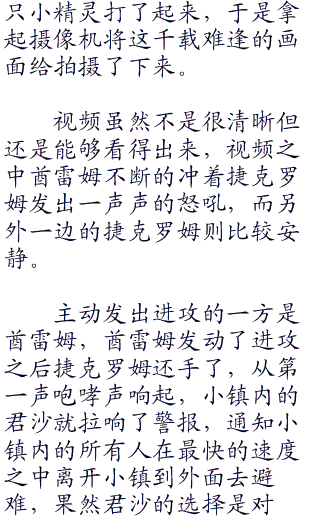 只小精灵打了起来，于是拿
起摄像机将这千载难逢的画
面给拍摄了下来。
视频虽然不是很清晰但
还是能够看得出来，视频之
中酋雷姆不断的冲着捷克罗
姆发出一声声的怒吼，而另
外一边的捷克罗姆则比较安
静。
主动发出进攻的一方是
酋雷姆，酋雷姆发动了进攻
之后捷克罗姆还手了，从第
一声咆哮声响起，小镇内的
君沙就拉响了警报，通知小
镇内的所有人在最快的速度
之中离开小镇到外面去避
难，果然君沙的选择是对